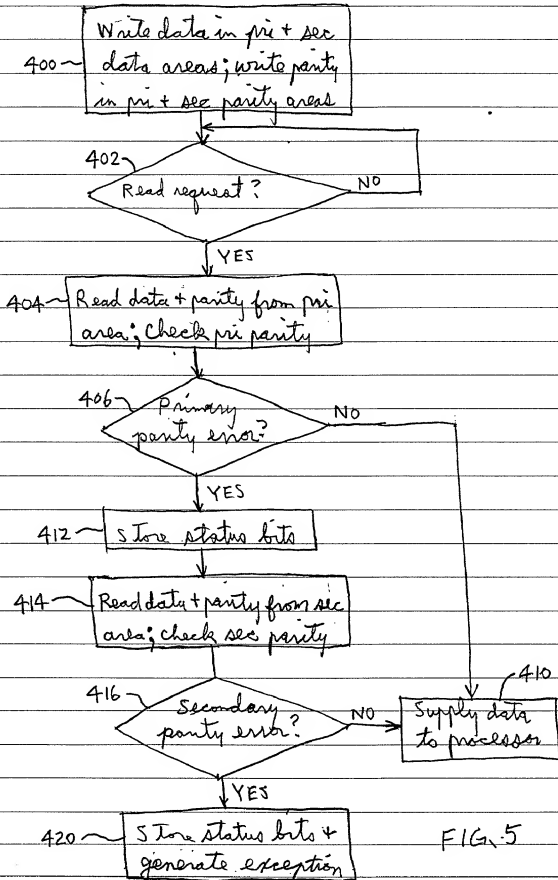 Write data in pri + sec
data areas; write parity
in pri + sec parity areas
400
402
Read request?
NO
YES
404
Read data + parity from pri
area; Check pri parity
406
Primary
parity error?
NO
YES
412
Store status bits
414
Read data + parity from sec
area; check sec parity
416
Secondary
parity error?
NO
410
Supply data
to processor
YES
420
Store status bits +
generate exception
FIG. 5